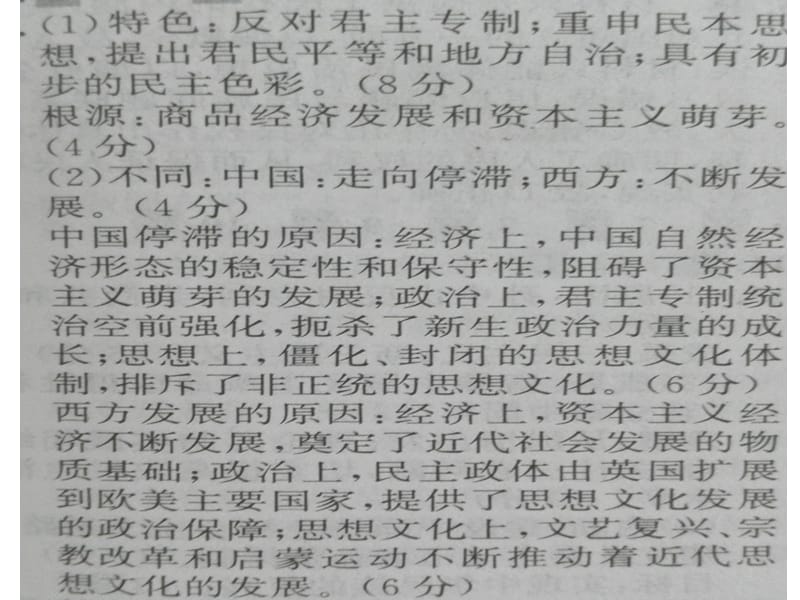 (1)特色:反对君主专制;重申民本思
想,提出君民平等和地方自治;具有初
步的民主色彩。(8分)
根源:商品经济发展和资本主义萌芽。
(4分)
(2)不同:中国:走向停滞;西方:不断发
展。(4分)
中国停滞的原因:经济上,中国自然经
济形态的稳定性和保守性,阻碍了资本
主义萌芽的发展;政治上,君主专制统
治空前强化,扼杀了新生政治力量的成
长;思想上,僵化、封闭的思想文化体
制,排斥了非正统的思想文化。(6分)
西方发展的原因:经济上,资本主义经
济不断发展,奠定了近代社会发展的物
质基础;政治上,民主政体由英国扩展
到欧美主要国家,提供了思想文化发展
的政治保障;思想文化上,文艺复兴、宗
教改革和启蒙运动不断推动着近代思
想文化的发展。(6分)